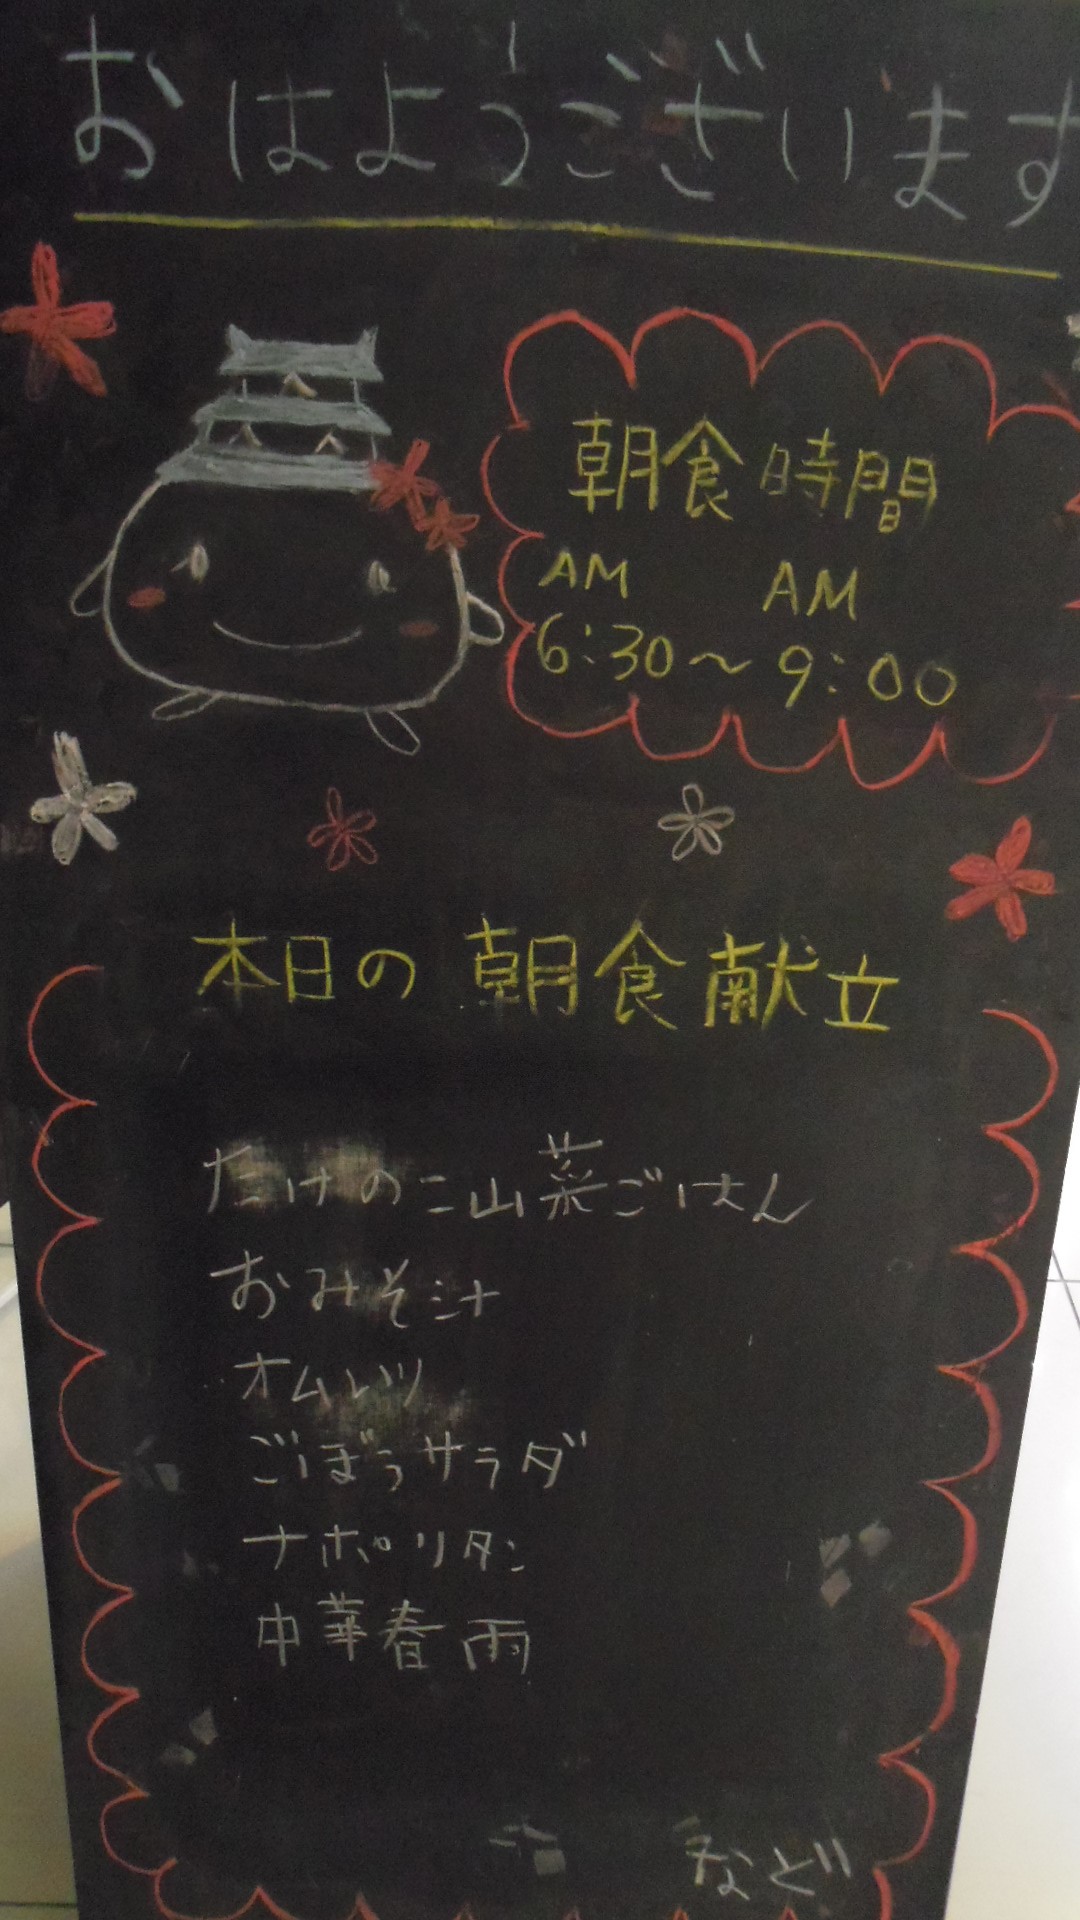 おはようございます
朝食時間
AM AM
6:30～9:00
本日の朝食献立
たけのこ山菜ごはん
おみそ汁
オムレツ
ごぼうサラダ
ナポリタン
中華春雨
など